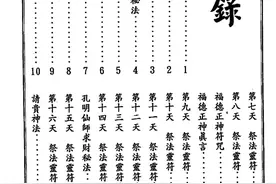 錄
1
2
3
秘法 4
5
6
7
8
9
10
第七天 祭法靈符
第八天 祭法靈符
福德正神符咒
福德正神眞言
第九天 祭法靈符
第十天 祭法靈符
第十一天 祭法靈符
第十二天 祭法靈符
第十三天 祭法靈符
第十四天 祭法靈符
孔明仙師求財秘法
第十五天 祭法靈符
第十六天 祭法靈符
請貴神法